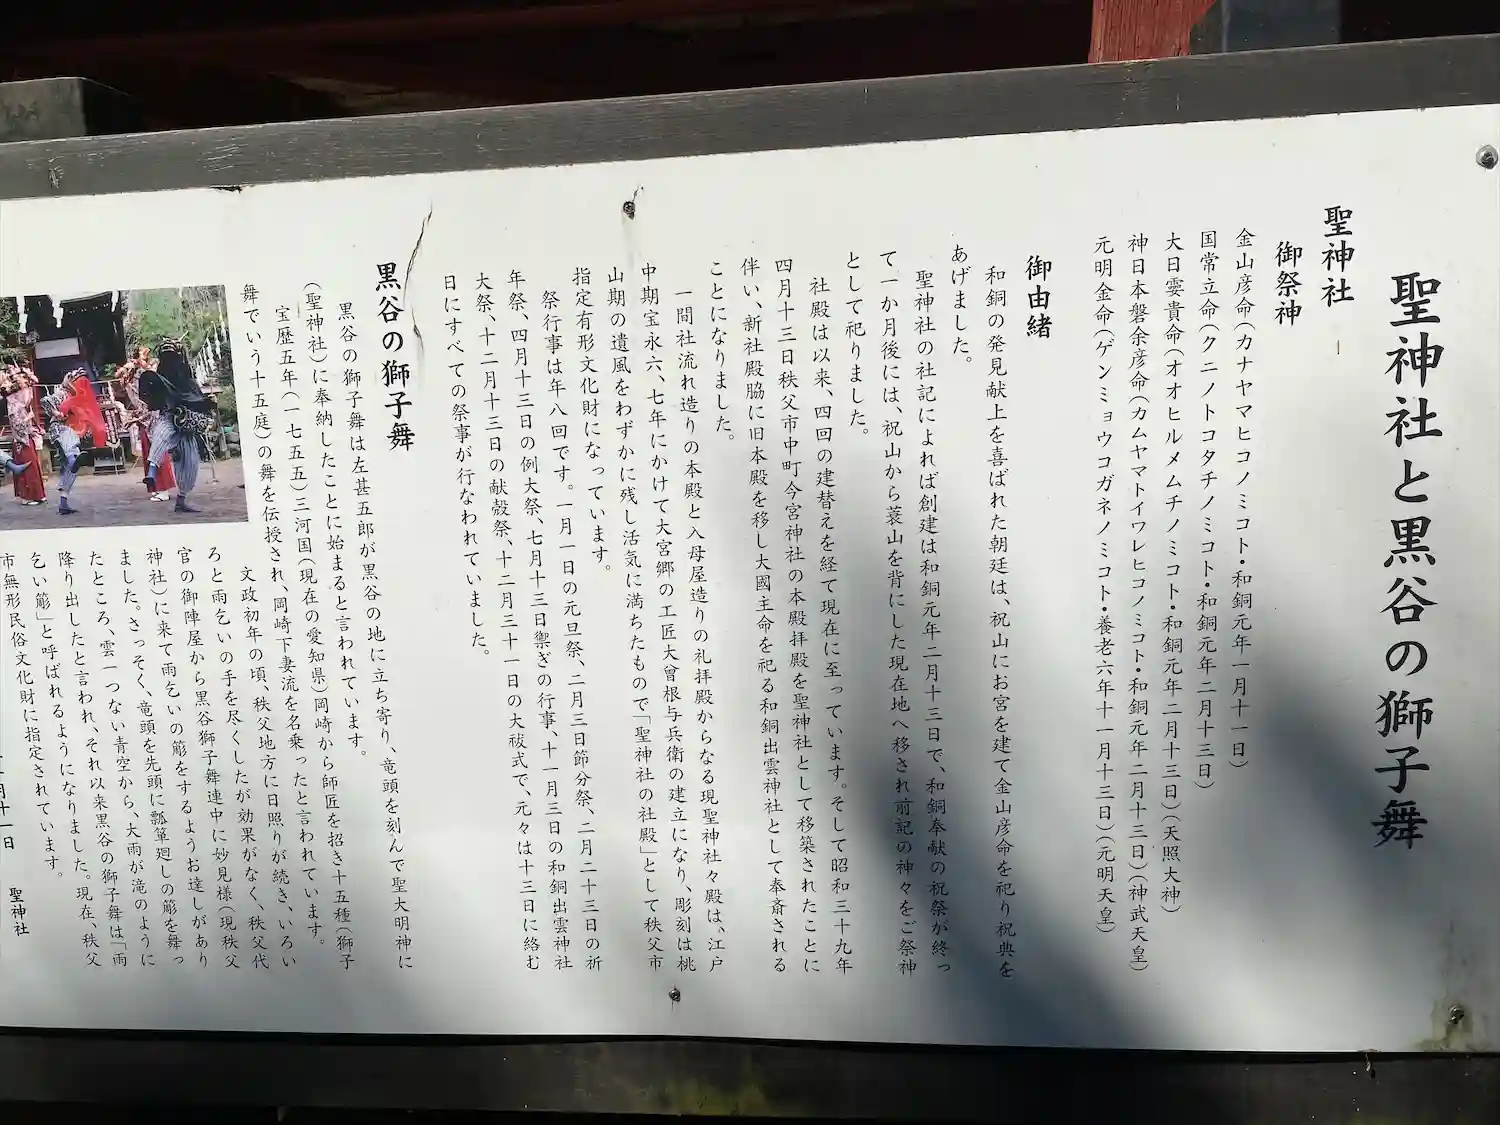 聖神社と黒谷の獅子舞
聖神社
御祭神
金山彦命(カナヤマヒコノミコト・和銅元年一月十一日)
国常立命(クニノトコタチノミコト・和銅元年二月十三日)
大日孁貴命(オオヒルメムチノミコト・和銅元年二月十三日)(天照大神)
神日本磐余彦命(カムヤマトイワレヒコノミコト・和銅元年二月十三日)(神武天皇)
元明金命(ゲンミョウコガネノミコト・養老六年十一月十三日)(元明天皇)
御由緒
和銅の発見献上を喜ばれた朝廷は、祝山にお宮を建て金山彦命を祀り祝典を
あげました。
聖神社の社記によれば創建は和銅元年二月十三日で、和銅奉献の祝祭が終っ
て一か月後には、祝山から蓑山を背にした現在地へ移され前記の神々をご祭神
として祀りました。
社殿は以来、四回の建替えを経て現在に至っています。そして昭和三十九年
四月十三日秩父市中町今宮神社の本殿拝殿を聖神社として移築されたことに
伴い、新社殿脇に旧本殿を移し大國主命を祀る和銅出雲神社として奉斎される
ことになりました。
一間社流れ造りの本殿と入母屋造りの礼拝殿からなる現聖神社々殿は、江戸
中期宝永六、七年にかけて大宮郷の工匠大曾根与兵衛の建立になり、彫刻は桃
山期の遺風をわずかに残し活気に満ちたもので「聖神社の社殿」として秩父市
指定有形文化財になっています。
祭行事は年八回です。一月一日の元旦祭、二月三日節分祭、二月二十三日の祈
年祭、四月十三日の例大祭、七月十三日禦ぎの行事、十一月三日の和銅出雲神社
大祭、十二月十三日の献穀祭、十二月三十一日の大祓式で、元々は十三日に絡む
日にすべての祭事が行なわれていました。
黒谷の獅子舞
黒谷の獅子舞は左甚五郎が黒谷の地に立ち寄り、竜頭を刻んで聖大明神に
(聖神社)に奉納したことに始まると言われています。
宝歴五年(一七五五)三河国(現在の愛知県)岡崎から師匠を招き十五種(獅子
舞でいう十五庭)の舞を伝授され、岡崎下妻流を名乗ったと言われています。
文政初年の頃、秩父地方に日照りが続き、いろい
ろと雨乞いの手を尽くしたが効果がなく、秩父代
官の御陣屋から黒谷獅子舞連中に妙見様(現秩父
神社)に来て雨乞いの簓をするようお達しがあり
ました。さっそく、竜頭を先頭に瓢箪廻しの簓を舞っ
たところ、雲一つない青空から、大雨が滝のように
降り出したと言われ、それ以来黒谷の獅子舞は「雨
乞い簓」と呼ばれるようになりました。現在、秩父
市無形民俗文化財に指定されています。
月十一日
聖神社